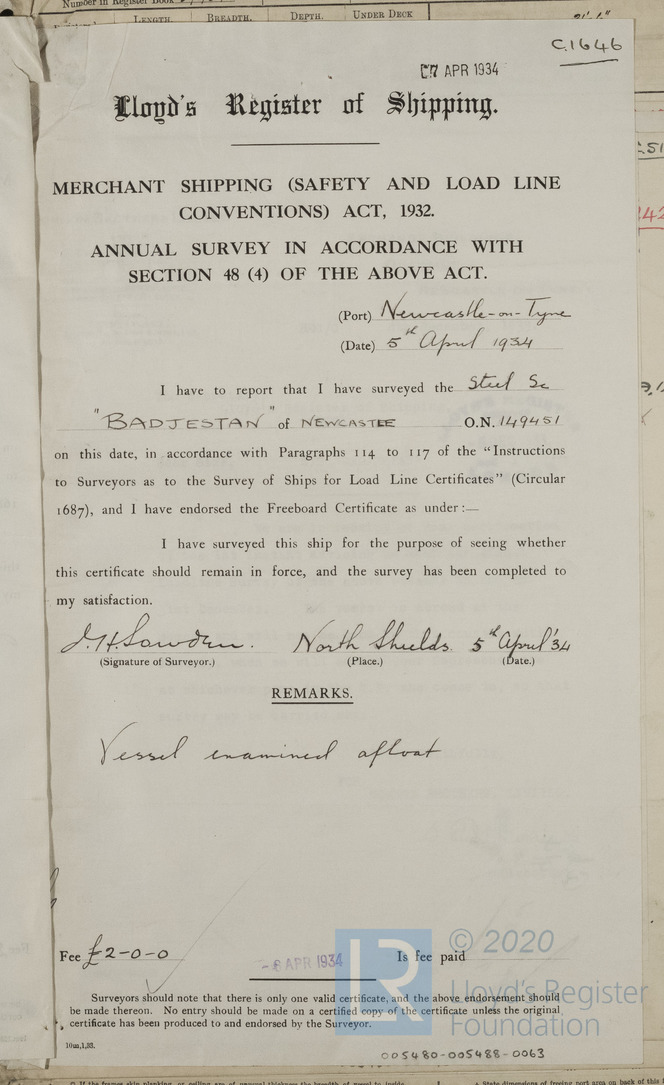 Number in Register Book
LENGTH. BREADTH. DEPTH. UNDER DECK
C.1646
7 APR 1934
Lloyd's Register of Shipping.
MERCHANT SHIPPING (SAFETY AND LOAD LINE
CONVENTIONS) ACT, 1932.
ANNUAL SURVEY IN ACCORDANCE WITH
SECTION 48 (4) OF THE ABOVE ACT.
(Port) Newcastle-on-Tyne
(Date) 5th April 1934
I have to report that I have surveyed the Steel Sc
"BADJESTAN" of NEWCASTLE O.N. 149451
on this date, in accordance with Paragraphs 114 to 117 of the "Instructions
to Surveyors as to the Survey of Ships for Load Line Certificates" (Circular
1687), and I have endorsed the Freeboard Certificate as under :—
I have surveyed this ship for the purpose of seeing whether
this certificate should remain in force, and the survey has been completed to
my satisfaction.
J. H. Sowden. North Shields. 5th April '34
(Signature of Surveyor.) (Place.) (Date.)
REMARKS.
Vessel examined afloat
Fee £2-0-0 Is fee paid
-6 APR 1934
Surveyors should note that there is only one valid certificate, and the above endorsement should
be made thereon. No entry should be made on a certified copy of the certificate unless the original
certificate has been produced to and endorsed by the Surveyor.
10m,1,33.
LR © 2020
Lloyd's Register
Foundation
005480-005488-0063